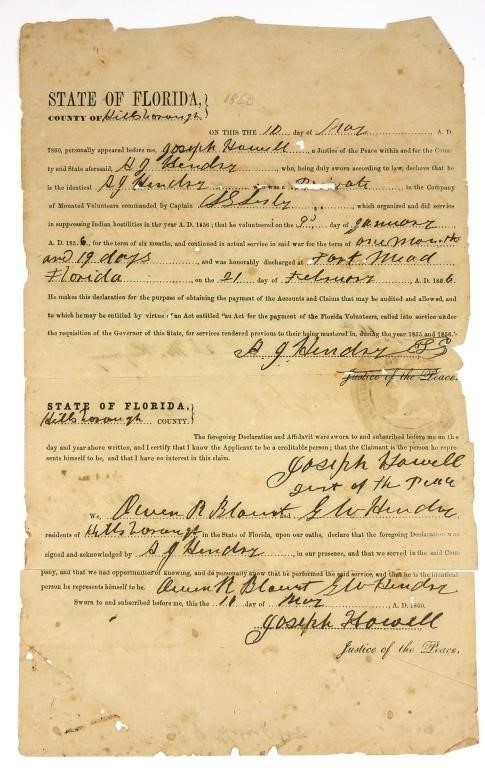 STATE OF FLORIDA,} 1860
COUNTY OF Hillsborough}
ON THIS THE 10 day of May A. D.
1860, personally appeared before me, Joseph Howell, a Justice of the Peace within and for the Coun-
ty and State aforesaid, A J Hendry, who, being duly sworn according to law, declares that he
is the identical A J Hendry who was a Private in the Company
of Mounted Volunteers commanded by Captain L G Lesly, which organized and did service
in suppressing Indian hostilities in the year A. D. 1856; that he volunteered on the 3d day of January
A. D. 1856, for the term of six months, and continued in actual service in said war for the term of one month
and 19 days, and was honorably discharged at Fort Mead
Florida on the 21 day of February A. D. 1856.
He makes this declaration for the purpose of obtaining the payment of the Accounts and Claims that may be audited and allowed, and
to which he may be entitled by virtue of an Act entitled "an Act for the payment of the Florida Volunteers, called into service under
the requisition of the Governor of this State, for services rendered previous to their being mustered in, during the year 1855 and 1856."
A J Hendry
Justice of the Peace.
STATE OF FLORIDA,}
Hillsborough COUNTY.
The foregoing Declaration and Affidavit were sworn to and subscribed before me on the
day and year above written, and I certify that I know the Applicant to be a creditable person; that the Claimant is the person he repre-
sents himself to be, and that I have no interest in this claim.
Joseph Howell
Just of the Peace
We, Owen R Blount and G W Hendry
residents of Hillsborough in the State of Florida, upon our oaths, declare that the foregoing Declaration was
signed and acknowledged by A J Hendry, in our presence, and that we served in the said Com-
pany, and that we had opportunities of knowing, and do personally know that he performed the said service, and that he is the identical
person he represents himself to be. Owen R Blount G W Hendry
Sworn to and subscribed before me, this the 10 day of May, A. D. 1860.
Joseph Howell
Justice of the Peace.